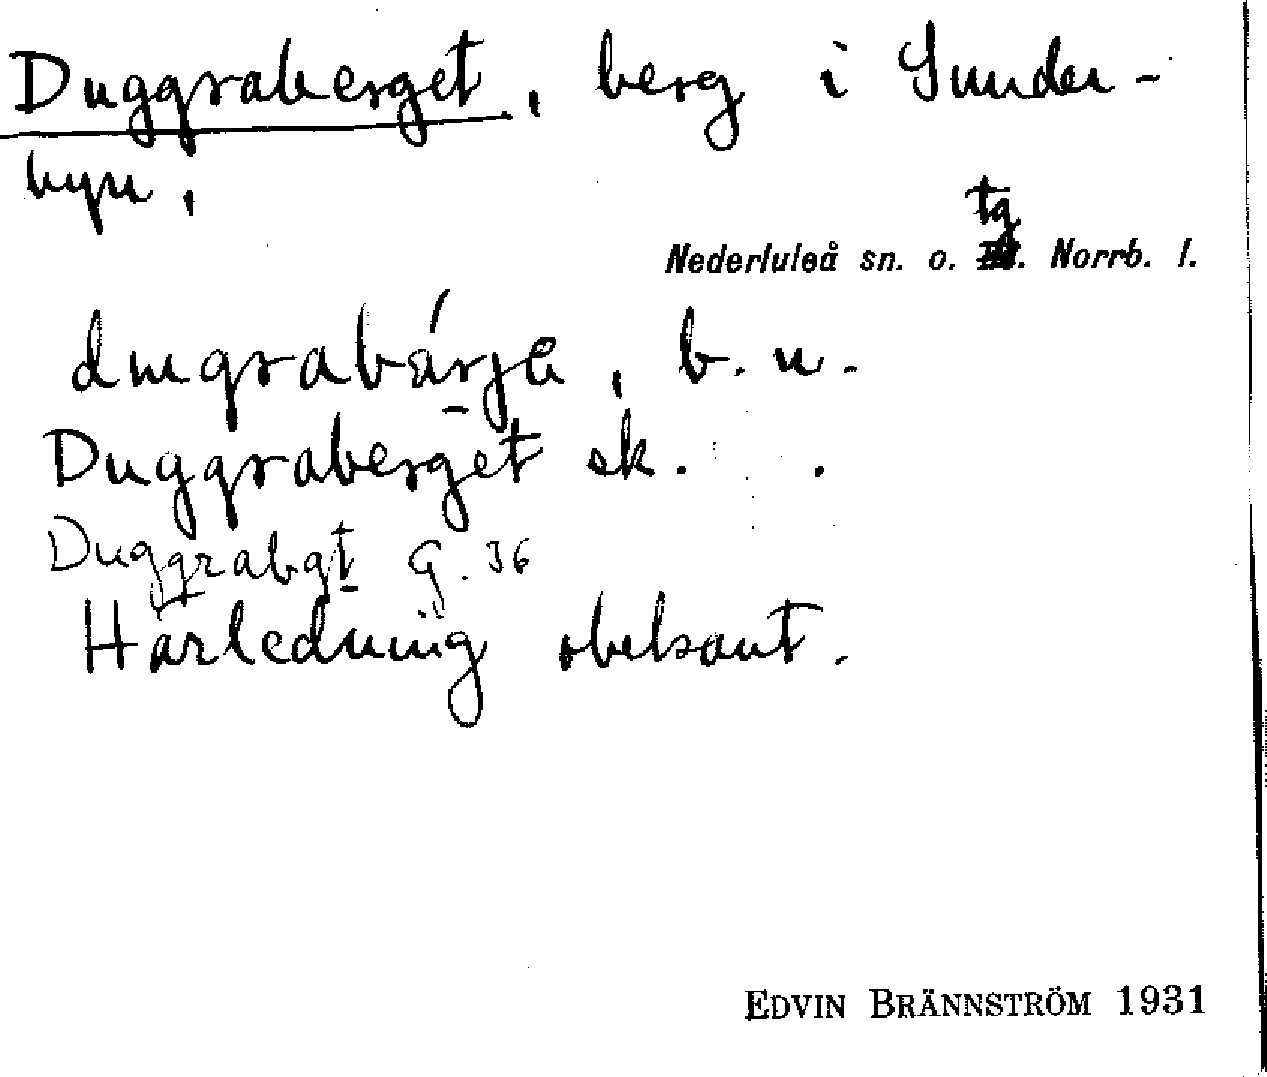 Duggraberget, berg i Sunder-
byn,
tg
Nederluleå sn. o. . Norrb. l.
b. n.
Duggraberget sk.
Duggrabgt G. 36
Härledning obekant.
EDVIN BRÄNNSTRÖM 1931